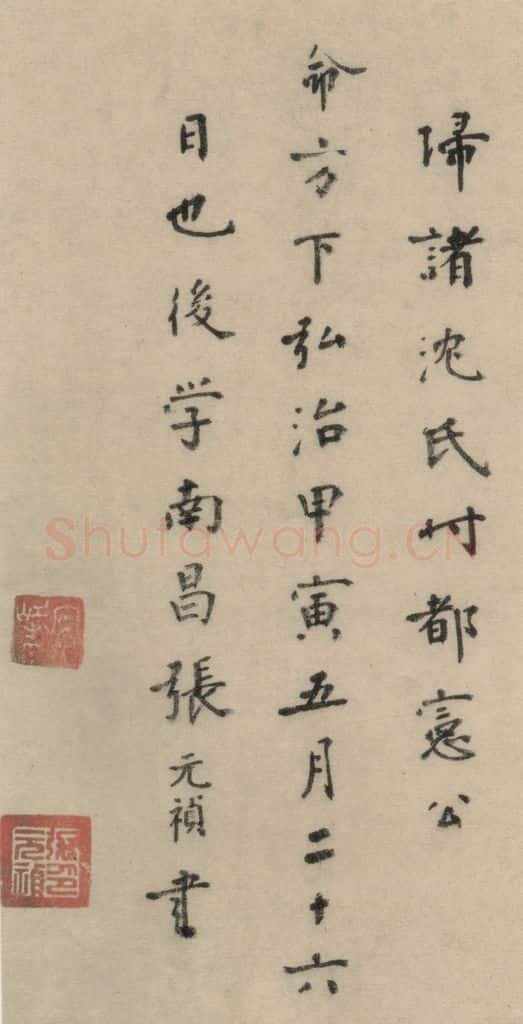 歸諸沈氏時都憲公
命方下弘治甲寅五月二十六
日也後学南昌張元禎書
Shufawang.CN
張元禎印